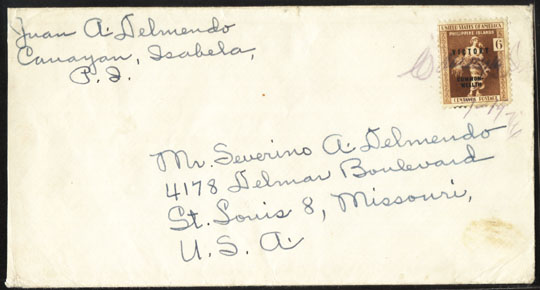 Juan A. Delmendo
Cauayan, Isabela,
P. I.
UNITED STATES OF AMERICA
PHILIPPINE ISLANDS
VICTORY
6
COMMON-
WEALTH
CENTAVOS POSTAGE
Mr. Severino A. Delmendo
4178 Delmar Boulevard
St. Louis 8, Missouri,
U. S. A.